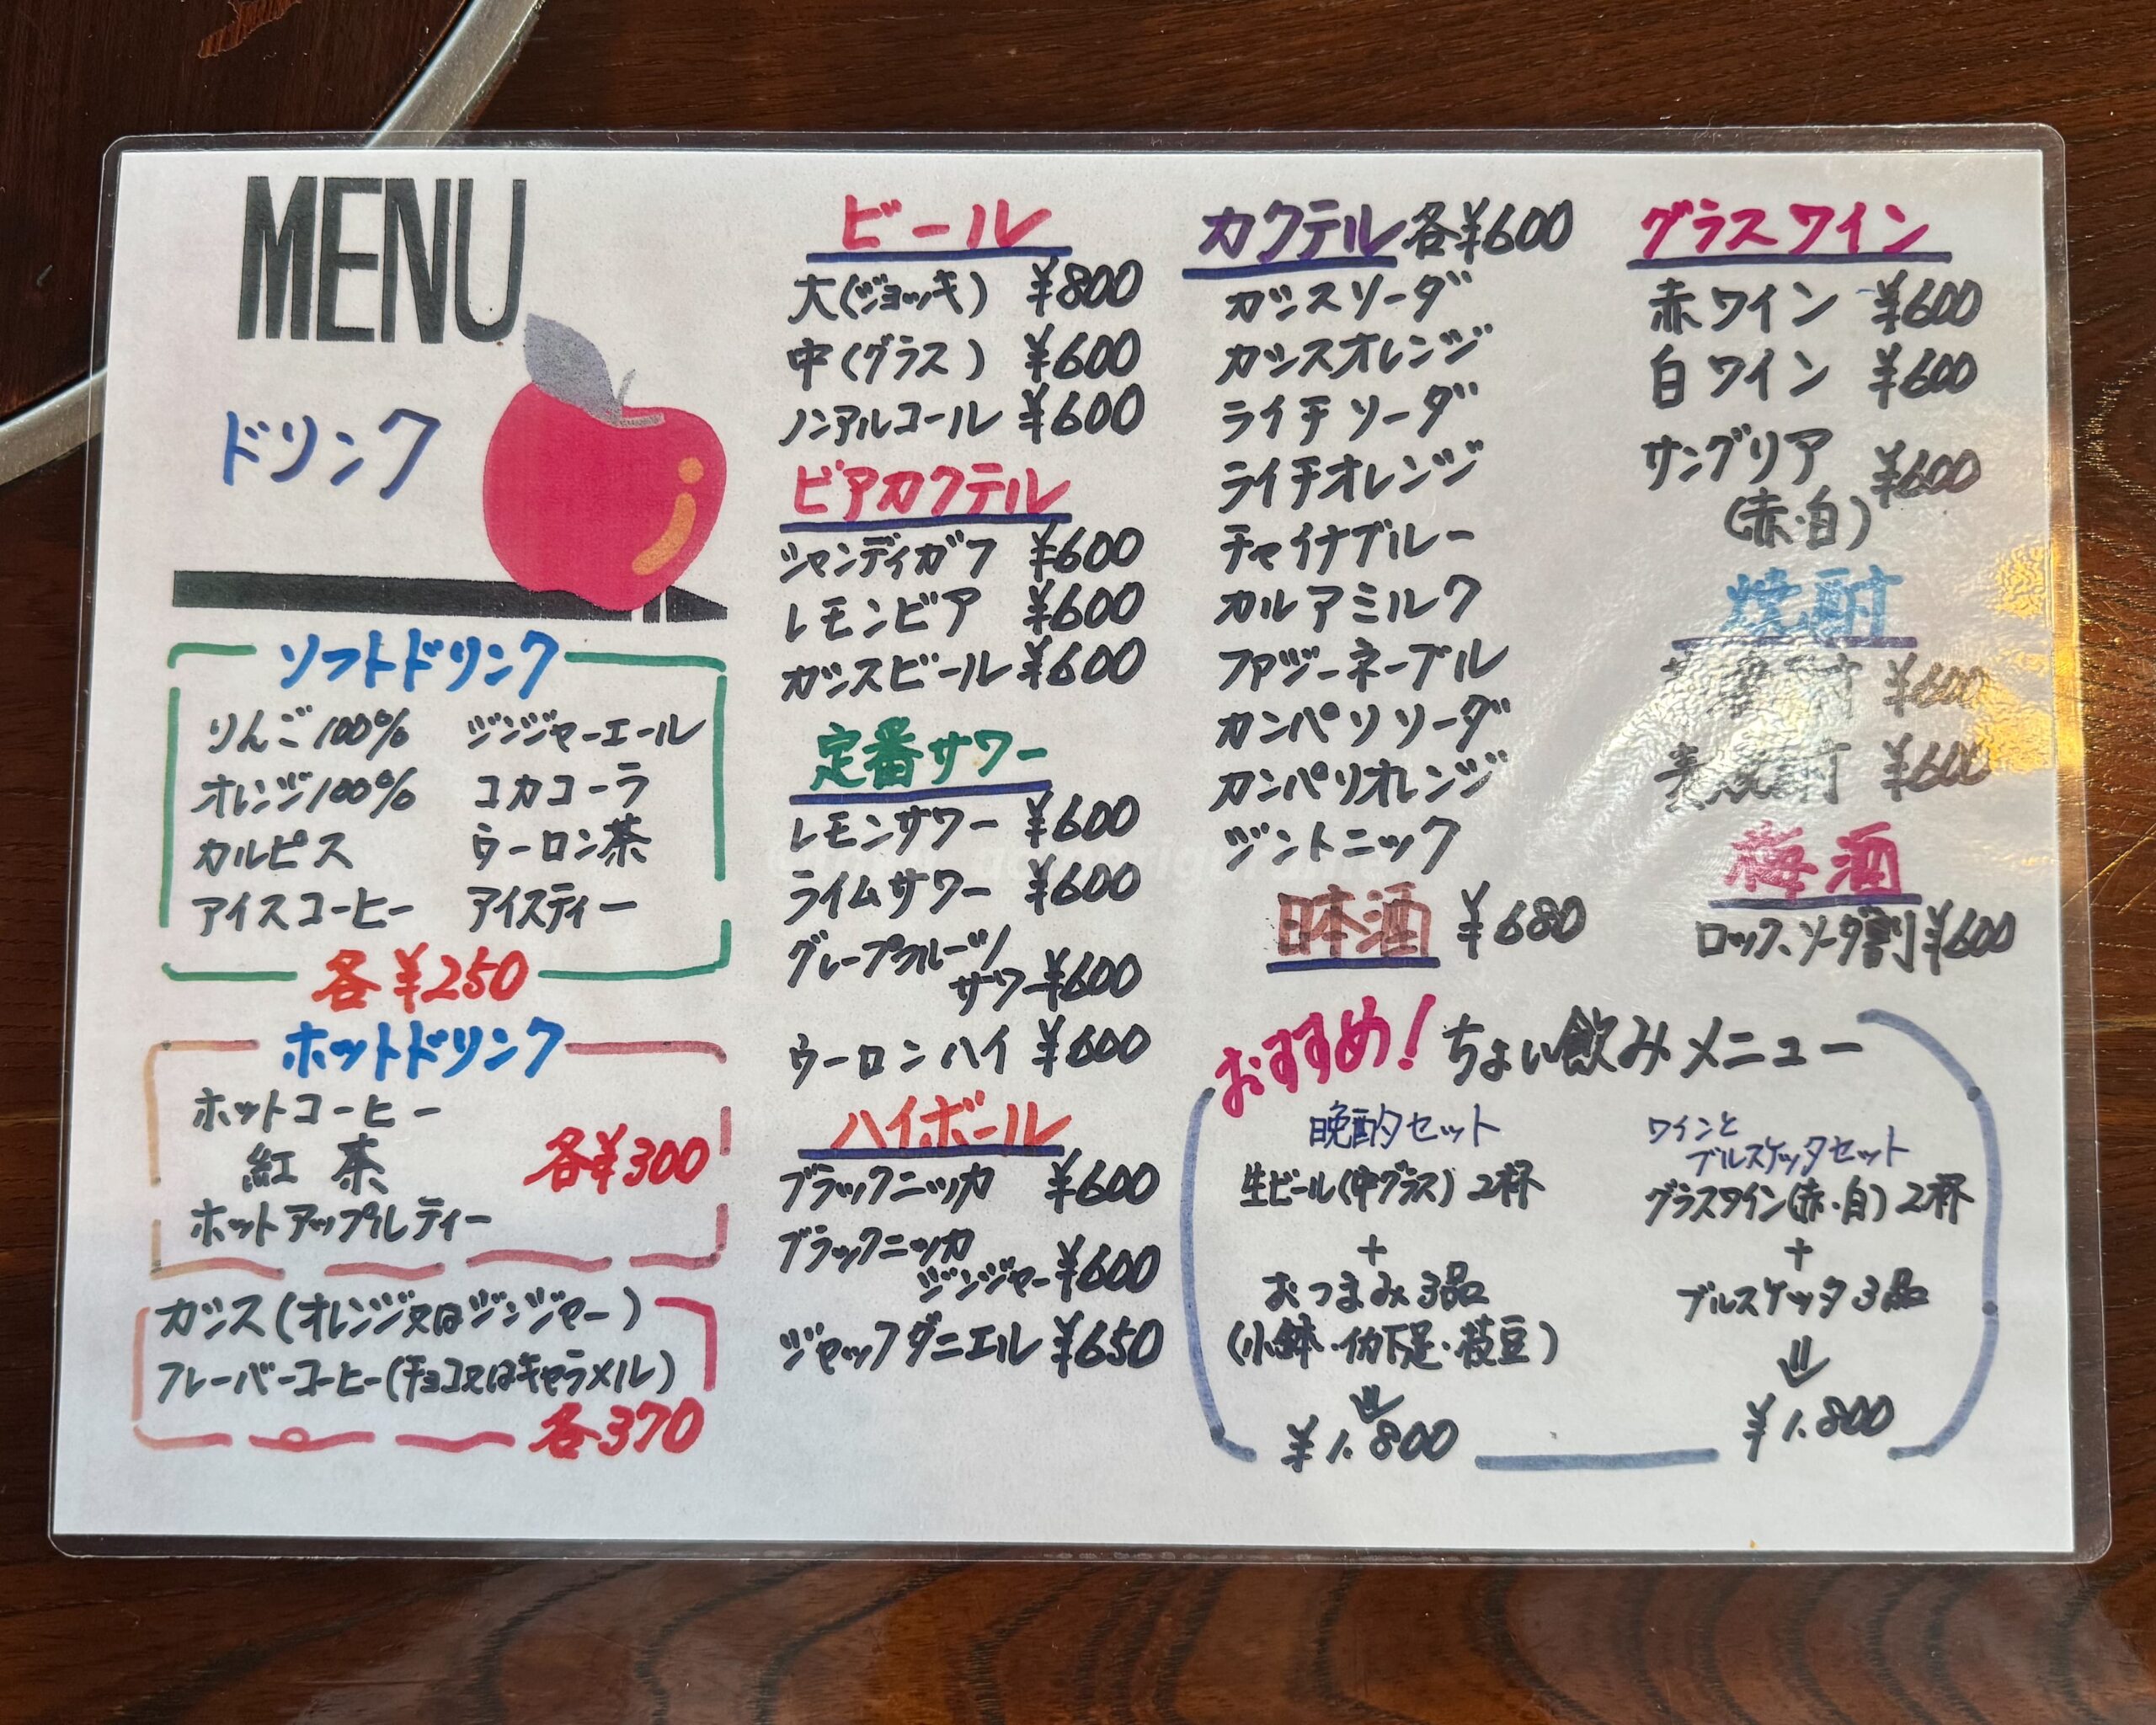 MENU
ドリンク
ソフトドリンク
りんご100% ジンジャーエール
オレンジ100% コカコーラ
カルピス ウーロン茶
アイスコーヒー アイスティー
各¥250
ホットドリンク
ホットコーヒー
紅茶
各¥300
ホットアップルティー
カシス(オレンジ又はジンジャー)
フレーバーコーヒー(チョコ又はキャラメル)
各370
ビール
大(ジョッキ) ¥800
中(グラス) ¥600
ノンアルコール ¥600
ビアカクテル
シャンディガフ ¥600
レモンビア ¥600
カシスビール ¥600
定番サワー
レモンサワー ¥600
ライムサワー ¥600
グレープフルーツ
サワー ¥600
ウーロンハイ ¥600
ハイボール
ブラックニッカ ¥600
ブラックニッカ
ジンジャー ¥600
ジャックダニエル ¥650
カクテル各¥600
カシスソーダ
カシスオレンジ
ライチソーダ
ライチオレンジ
チャイナブルー
カルアミルク
ファジーネーブル
カンパリソーダ
カンパリオレンジ
ジントニック
日本酒 ¥680
グラスワイン
赤ワイン ¥600
白ワイン ¥600
サングリア ¥600
(赤・白)
焼酎
¥600
¥600
梅酒
ロック、ソーダ割 ¥600
おすすめ!ちょい飲みメニュー
晩酌セット
生ビール(中グラス)2杯
+
おつまみ3品
(小鉢・・枝豆)
¥1.800
ワインと
ブルスケッタセット
グラスワイン(赤・白)2杯
+
ブルスケッタ3品
¥1.800